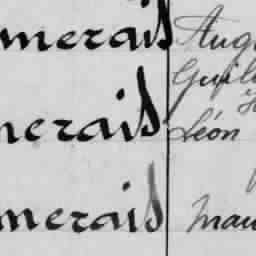 merais Aug
Guil
nerais Léon
merais Mau